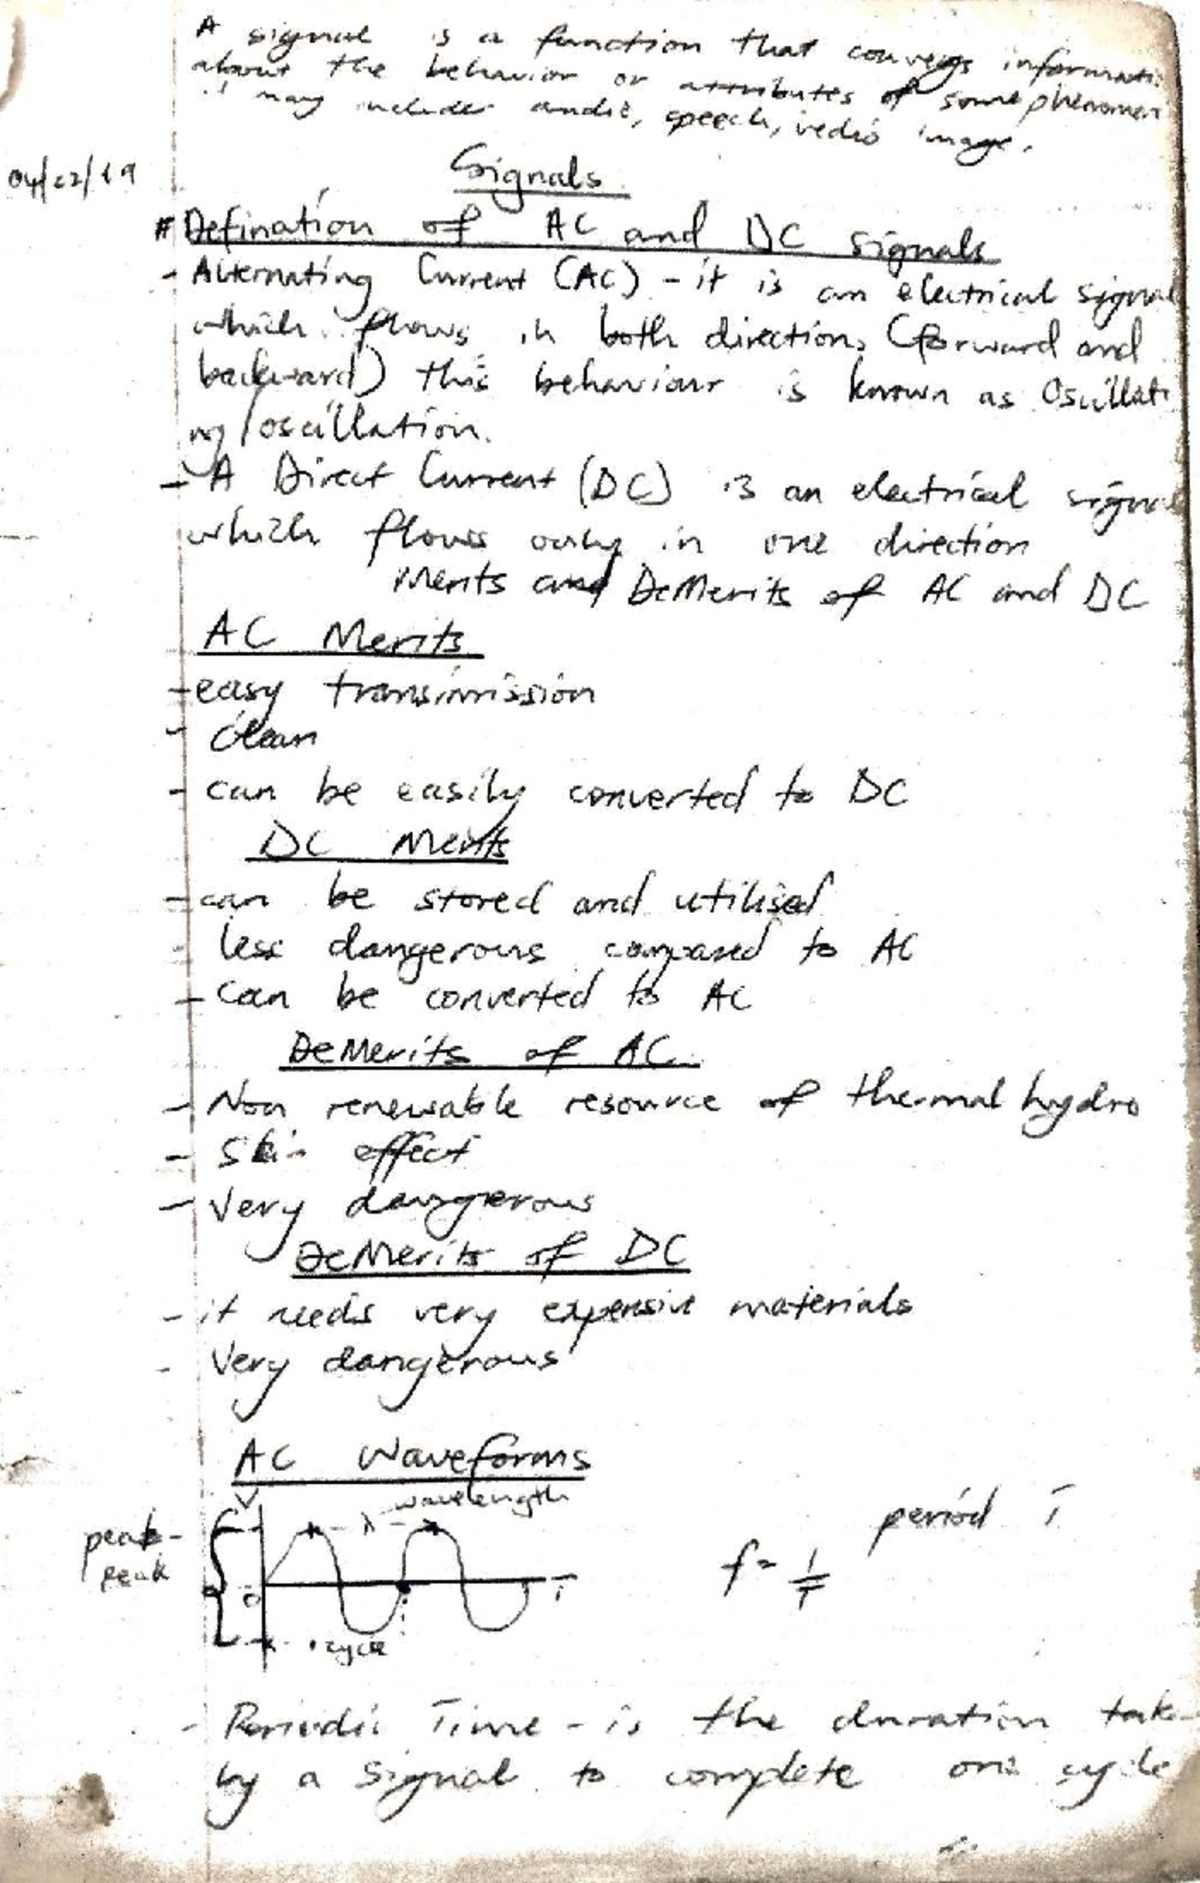 A signal is a function that converys informati
about the behavior or attributes of some phenomen
it may include audio, speech, vedio image.
04/02/19
Signals
# Defination of AC and DC signals
- Alternating Current (AC) - it is an electrical signal
which flows in both directions (forward and
backward) this behaviour is known as Oscillati
ng/oscillation.
- A Direct Current (DC) is an electrical signal
which flows only in one direction
Merits and DeMerits of AC and DC
AC Merits
- easy transimission
- clean
- can be easily converted to DC
DC Merits
- can be stored and utilised
- less dangerous compared to AC
- can be converted to AC
DeMerits of AC
- Non renewable resource of thermal hydro
- Skin effect
- Very dangerous
DeMerits of DC
- it needs very expensive materials
- Very dangerous
AC Waveforms
V
wavelength
λ
peak-
peak
0
T
cycle
period T
f = 1/T
- Periodic Time - is the duration take
by a signal to complete one cycle